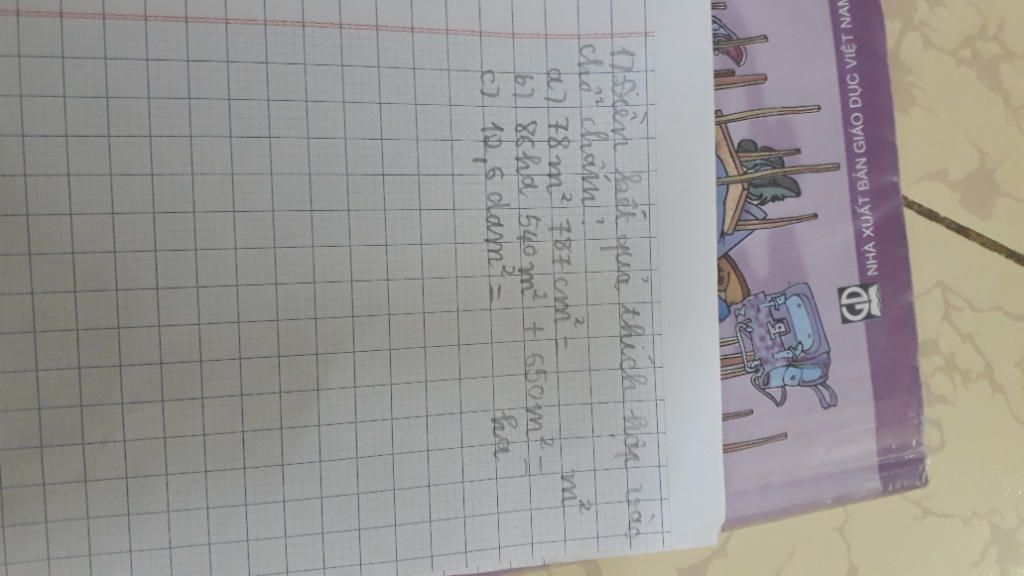 1) Điền kết quả thích hợp vào
chỗ chấm:
a) 78m² 787cm² = m²
b) 86ha 540m² + 650m² =
c) 12,6 dam² = ha
NHÀ XUẤT BẢN GIÁO DỤC VIỆT NAM